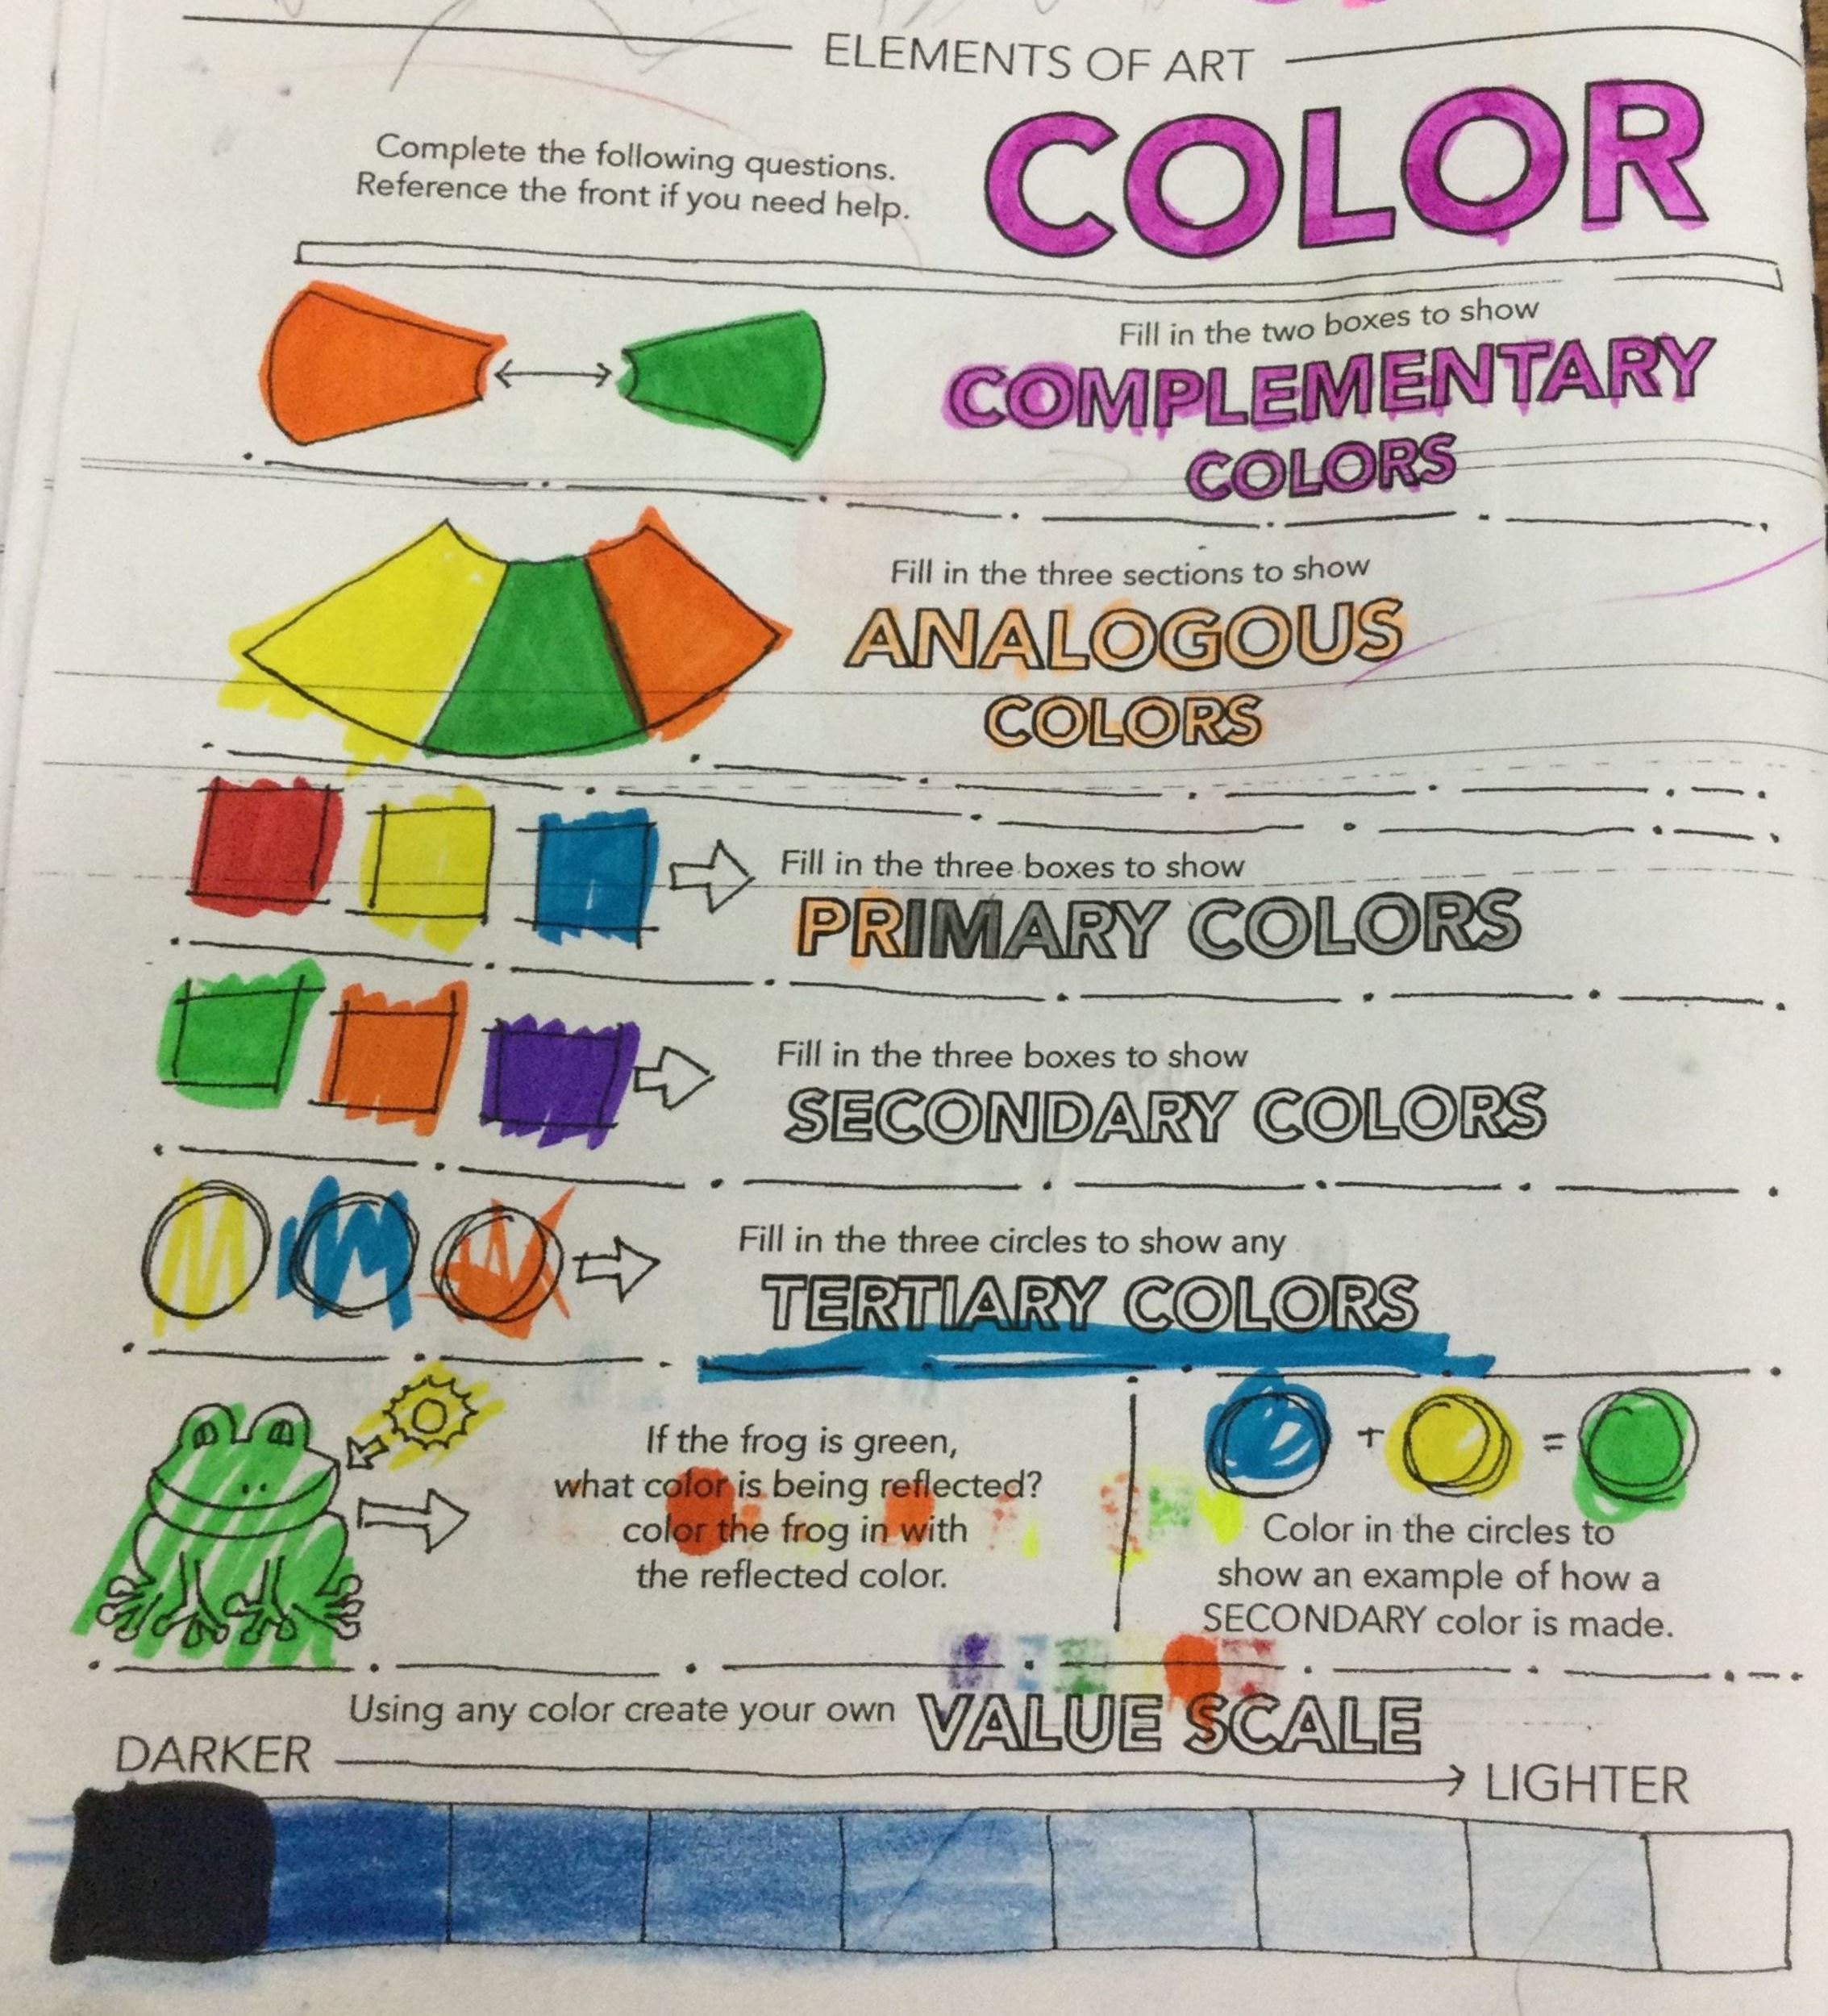 ELEMENTS OF ART
COLOR
Complete the following questions.
Reference the front if you need help.
Fill in the two boxes to show
COMPLEMENTARY
COLORS
Fill in the three sections to show
ANALOGOUS
COLORS
Fill in the three boxes to show
PRIMARY COLORS
Fill in the three boxes to show
SECONDARY COLORS
Fill in the three circles to show any
TERTIARY COLORS
If the frog is green,
what color is being reflected?
color the frog in with
the reflected color.
+ =
Color in the circles to
show an example of how a
SECONDARY color is made.
Using any color create your own VALUE SCALE
DARKER
LIGHTER